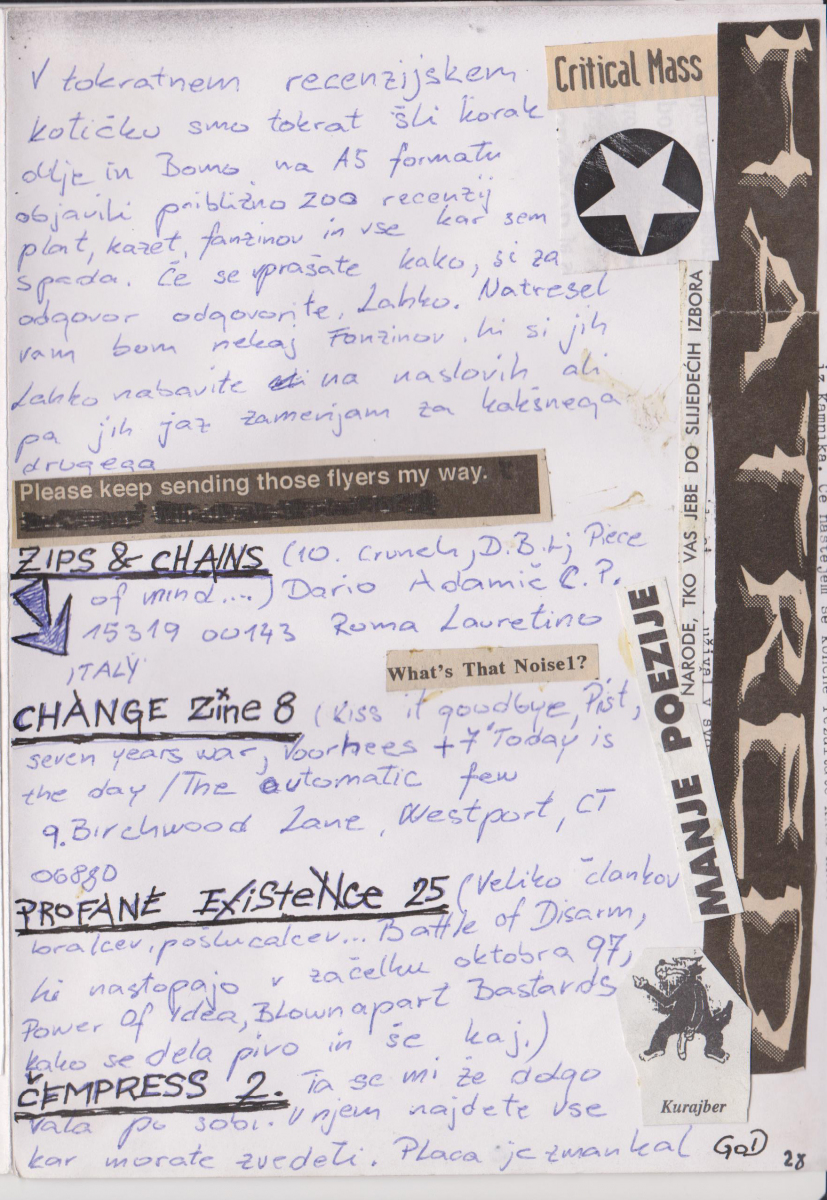 V tokratnem recenzijskem
kotičku smo tokrat šli korak
dlje in Bomo na A5 formatu
objavili približno 200 recenzij
plat, kazet, fanzinov in vse kar sem
spada. Če se vprašate kako, si za
odgovor odgovorite. Lahko. Natresel
vam bom nekaj Fanzinov ki si jih
Lahko nabavite na naslovih ali
pa jih jaz zamenjam za kakšnega
drugega
Critical Mass
HATRED
NARODE, TKO VAS JEBE DO SLIJEDEĆIH IZBORA
MANJE POEZIJE
Please keep sending those flyers my way.
ZIPS & CHAINS (10. Crunch, D.B.L; Piece
of mind....) Dario Adamič C.P.
15319 00143 Roma Lauretino
ITALY
What's That Noise1?
CHANGE Zine 8 (Kiss it goodbye, Pist,
seven years war, Voorhees + 7" Today is
the day / The automatic few
9. Birchwood Lane, Westport, CT
06880
PROFANE EXiSteNce 25 (Veliko člankov
bralcev, poslucalcev... Battle of Disarm,
ki nastopajo v začetku oktobra 97,
Power Of Idea, Blownapart Bastards
kako se dela pivo in še kaj.)
ČEMPRESS 2. Ta se mi že dolgo
vala po sobi. V njem najdete vse
kar morate zvedeti. Placa je zmankal
GoD
Kurajber
28